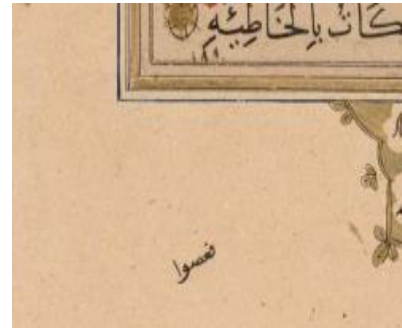 كَاتُ بِالْخَاطِئَةِ
فعصوا